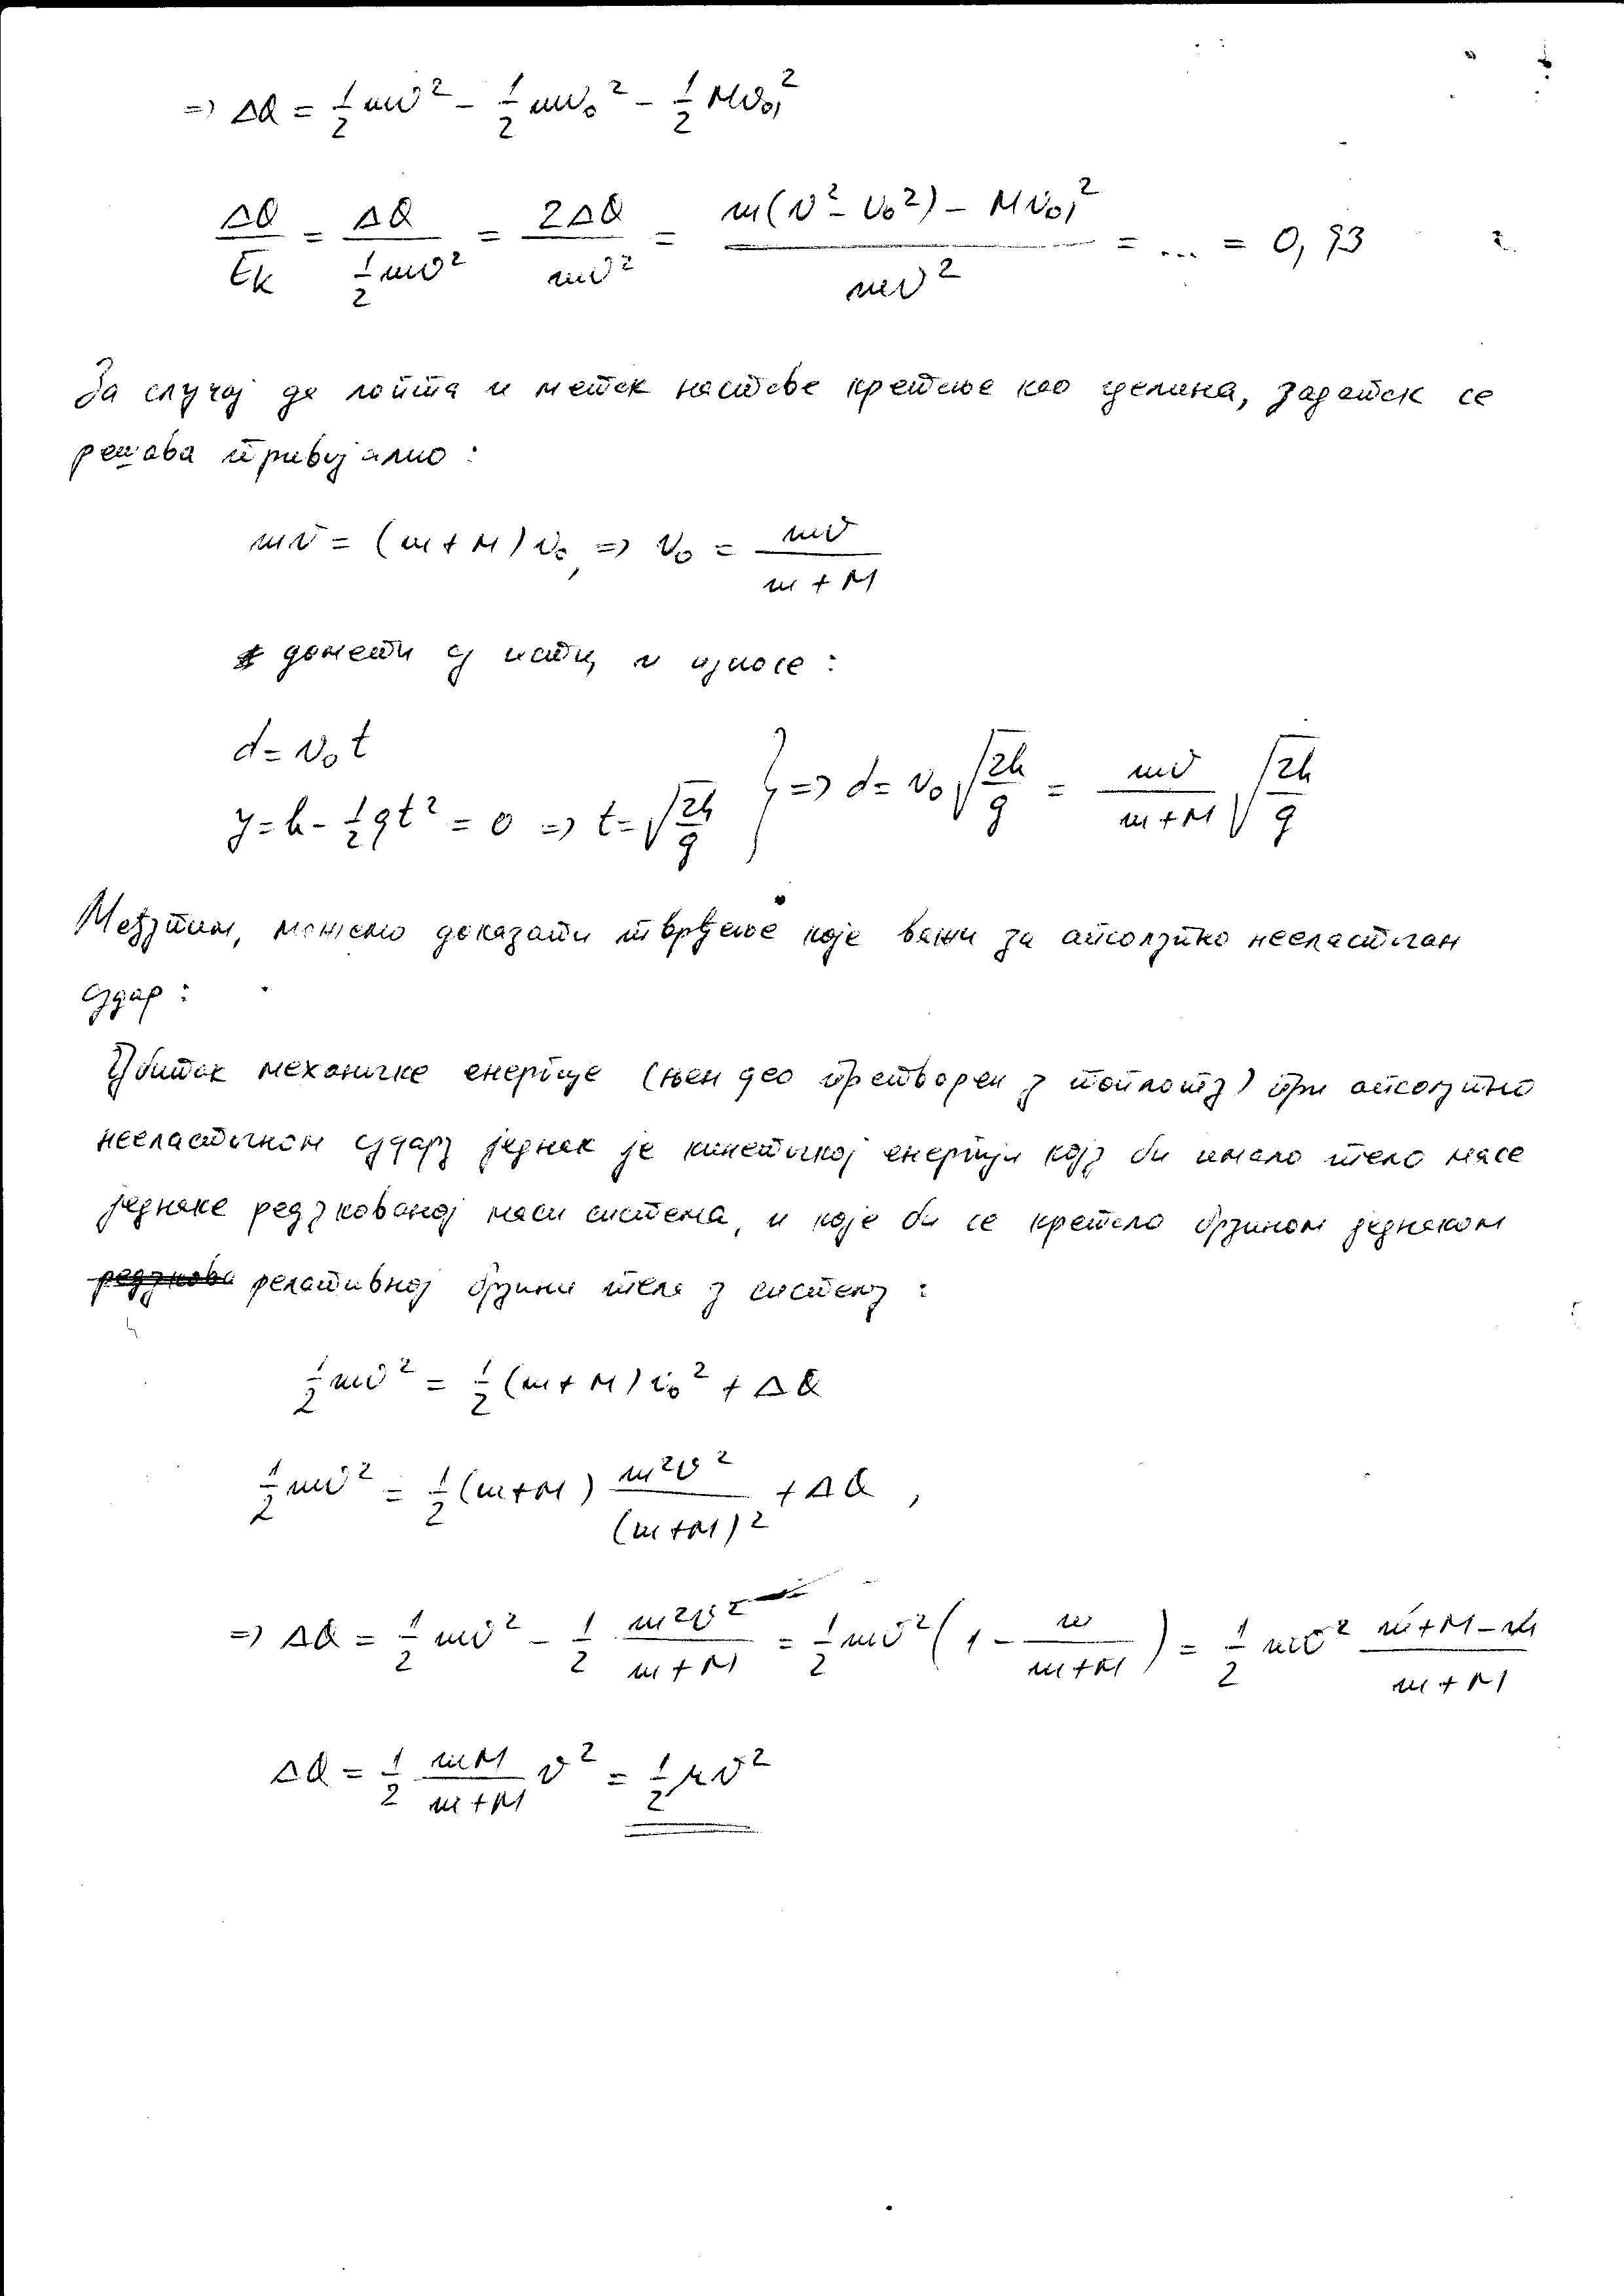 ⇒ ΔQ = 1/2 mv² − 1/2 mv₀² − 1/2 Mv₀₁²
ΔQ/Eₖ = ΔQ/(1/2 mv²) = 2ΔQ/(mv²) = (m(v² − v₀²) − Mv₀₁²)/(mv²) = ... = 0,93
За случај да лопта и метак наставе кретање као целина, задатак се
решава тривијално:
mv = (m + M)v₀, ⇒ v₀ = mv/(m + M)
домети су исти, и износе:
d = v₀t
y = h − 1/2 gt² = 0 ⇒ t = √(2h/g) } ⇒ d = v₀√(2h/g) = mv/(m + M) √(2h/g)
Међутим, можемо доказати тврђење које важи за апсолутно нееластичан
судар:
Убитак механичке енергије (њен део претворен у топлоту) при апсолутно
нееластичном судару једнак је кинетичкој енергији коју би имало тело масе
једнаке редукованој маси система, и које би се кретало брзином једнаком
релативној брзини тела у систему:
1/2 mv² = 1/2 (m + M)v₀² + ΔQ
1/2 mv² = 1/2 (m+M) m²v²/(m+M)² + ΔQ,
⇒ ΔQ = 1/2 mv² − 1/2 m²v²/(m + M) = 1/2 mv² (1 − m/(m+M)) = 1/2 mv² (m+M−m)/(m+M)
ΔQ = 1/2 mM/(m+M) v² = 1/2 μv²